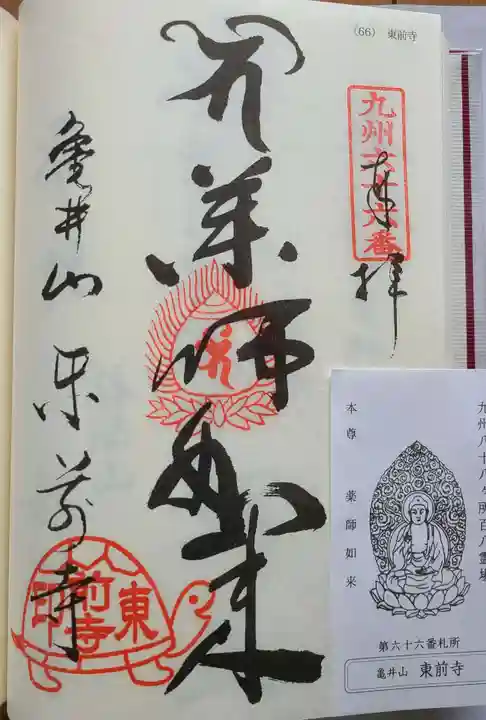 (66) 東前寺
九州六十六番
奉拝
薬師如来
亀井山 東前寺
東前寺
九州八十八ヶ所百八霊場
本尊 薬師如来
第六十六番札所
亀井山 東前寺